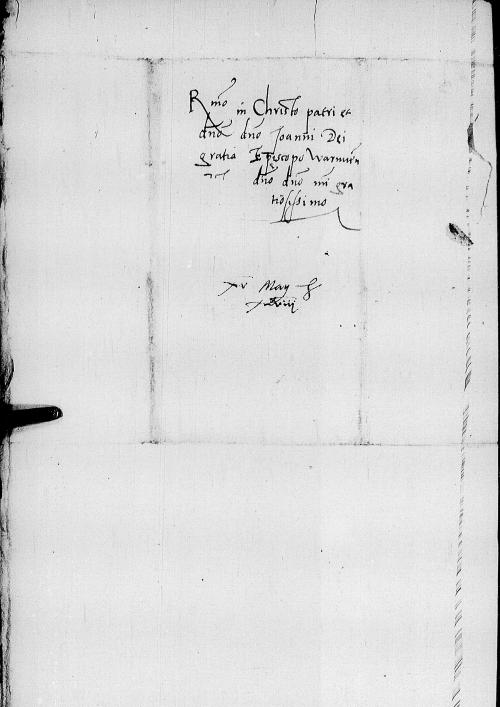 Rmo in Christo patri et
dno dno Joanni Dei
gratia Episcopo Warmien
dno dno mi gra
tiosissimo
xv May